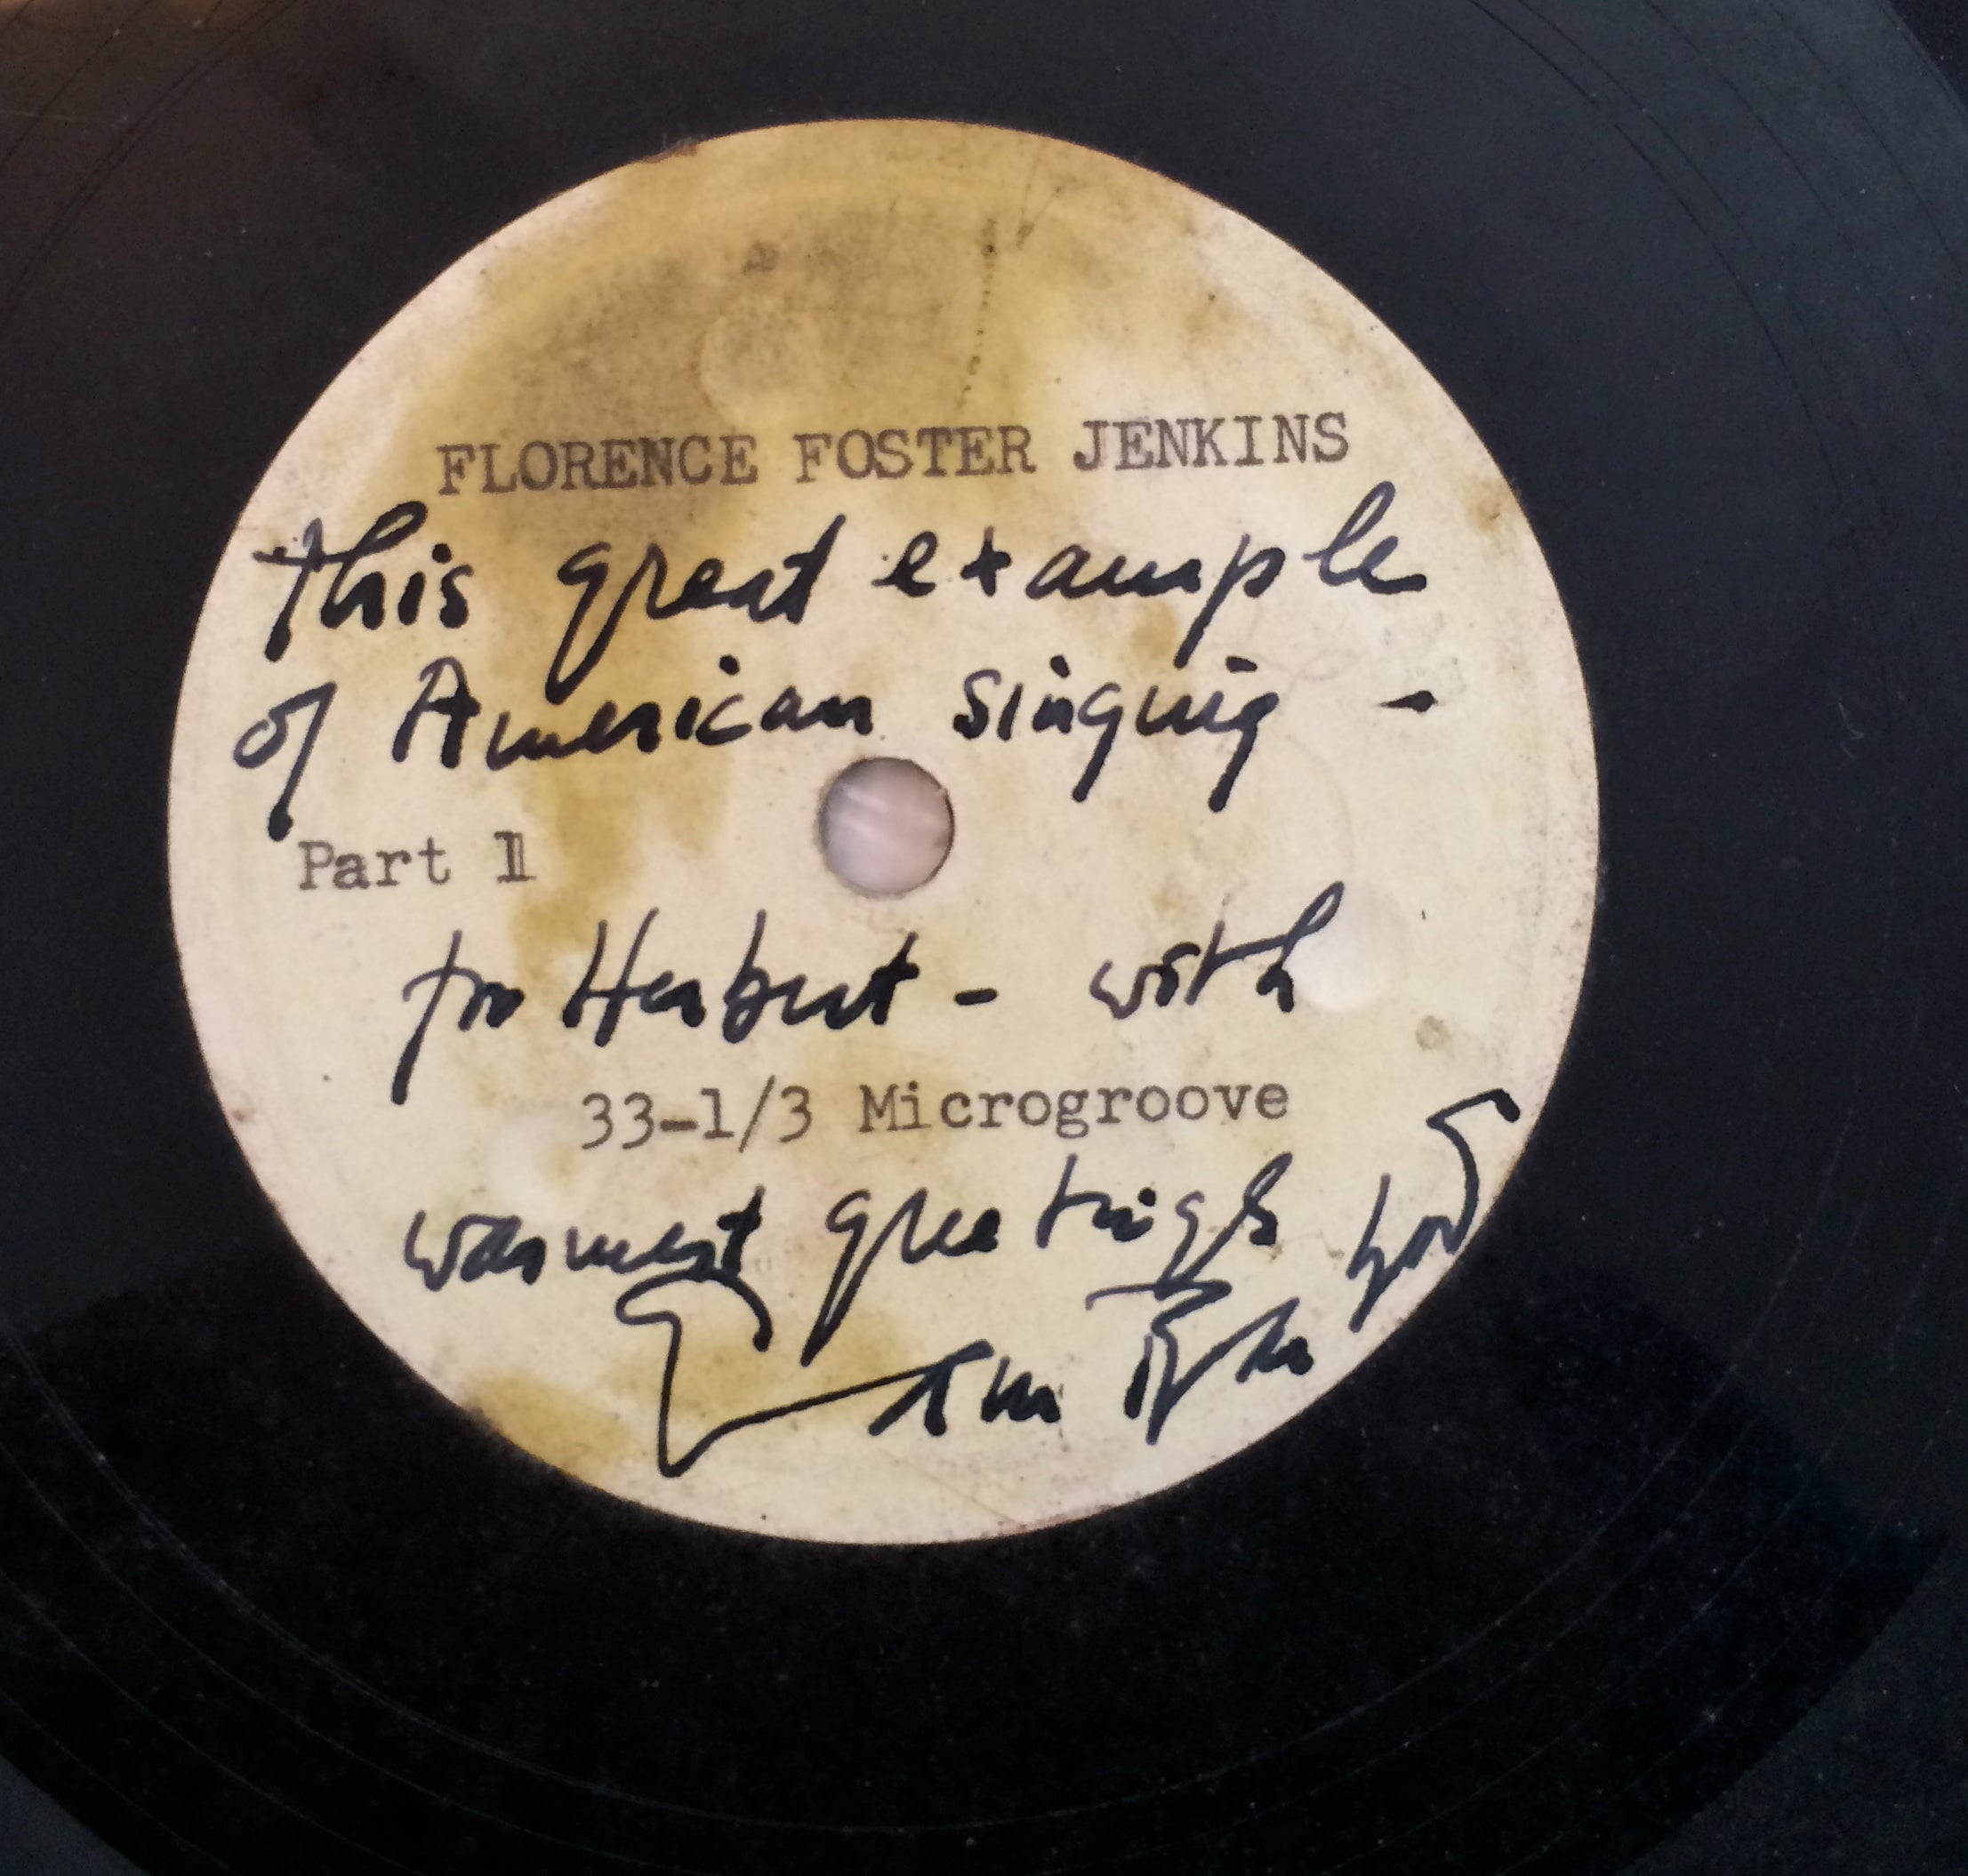 FLORENCE FOSTER JENKINS
this great example
of American singing -
Part 1
for Herbert - with
33-1/3 Microgroove
warmest greetings